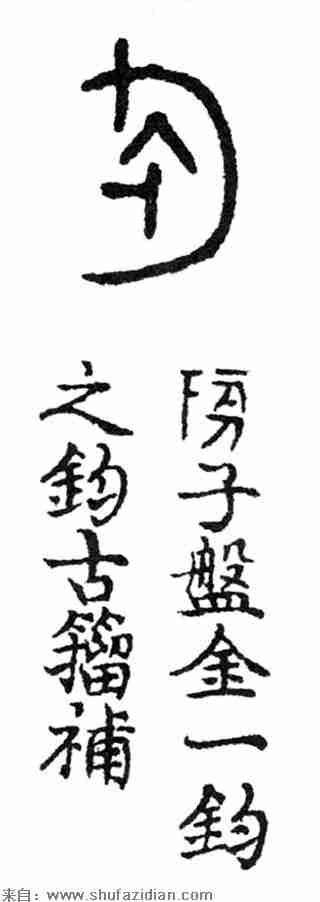 子盤金一鈞
之鈞古籀補
来自：www.shufazidian.com